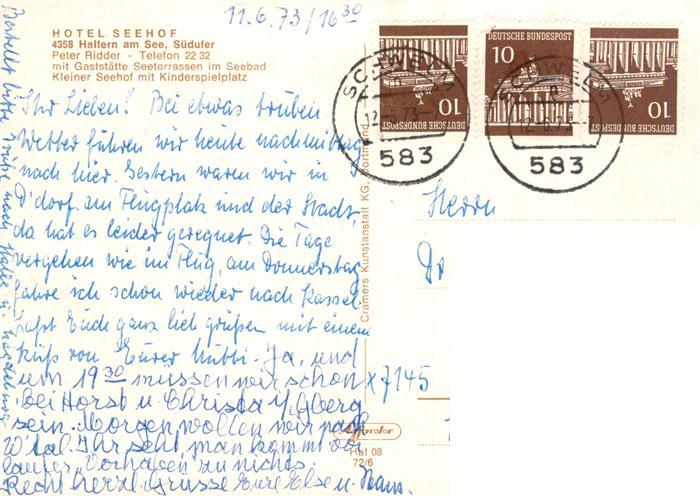 11.6.73/16³⁰
HOTEL SEEHOF
4358 Haltern am See, Südufer
Peter Ridder - Telefon 22 32
mit Gaststätte Seeterrassen im Seebad
Kleiner Seehof mit Kinderspielplatz
Ihr Lieben! Bei etwas trüben
Wetter führen wir heute nachmittag
nach hier. Gestern waren wir in
D'dorf am Flugplatz und der Stadt
da hat es leider geregnet. Die Tage
vergehen wie im Flug, am Donnerstag
fahre ich schon wieder nach Kassel.
Laßt Euch ganz lieb grüßen mit einem
Kuß von Eurer Mutti. Ja, und
um 19³⁰ müssen wir schon
bei Horst u. Christa i/
sein. Morgen wollen wir nach
W'tal. Ihr seht, man kommt vor
lauter "Vorhaben" zu nichts.
Recht herzl. Grüsse Eure Else u. Hans.
Bestellt bitte Grüße nach Halle u.
Cramers Kunstanstalt KG, Dortmund
DEUTSCHE BUNDESPOST
10
DEUTSCHE BUNDESPOST
10
DEUTSCHE BUNDESPOST
10
SCHWELM
12.-6.73
583
SCHWELM
12.-6.73
583
Herrn
Dr
x 7145
Hal 08
72/6